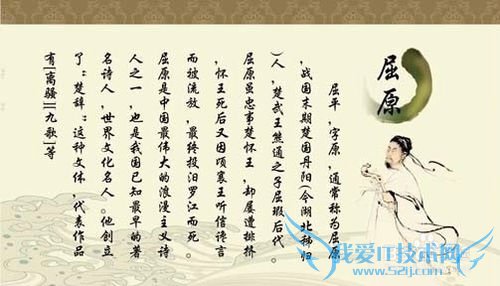 屈原
屈平，字原，通常称为屈原
，战国末期楚国丹阳(今湖北秭归
)人，楚武王熊通之子屈瑕后代。
屈原虽忠事楚怀王，却屡遭排挤
，怀王死后又因顷襄王听信谗言
而被流放，最终投汨罗江而死。
屈原是中国最伟大的浪漫主义诗
人之一，也是我国已知最早的著
名诗人，世界文化名人。他创立
了"楚辞"这种文体，代表作品
有《离骚》《九歌》等
我爱IT技术网
www.52ij.com